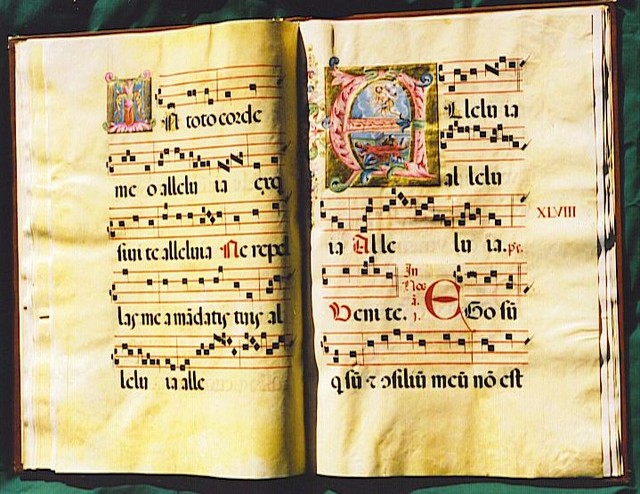 N toto corde
me o allelu ia exq
siui te alleluia Ne repel
las me a mādatis tuis al
lelu ia alle
A Llelu ia
al lelu
ia Alle lu ia. ps.
XLVIII
Veni te.
In
j.
EGo sū
q sū ⁊ ɔsiliū meū nō est